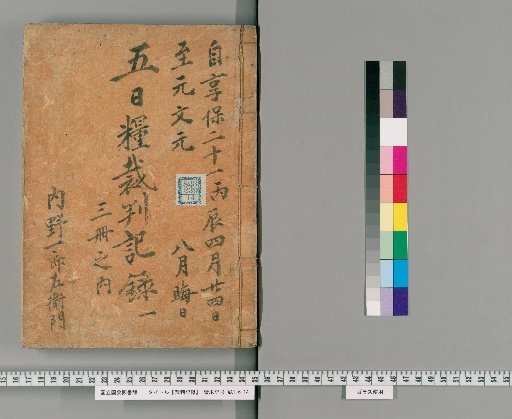 自享保二十一丙辰四月廿四日
至元文元　八月晦日
五日糧裁判記録 一
三冊之内
内野一郎左衛門